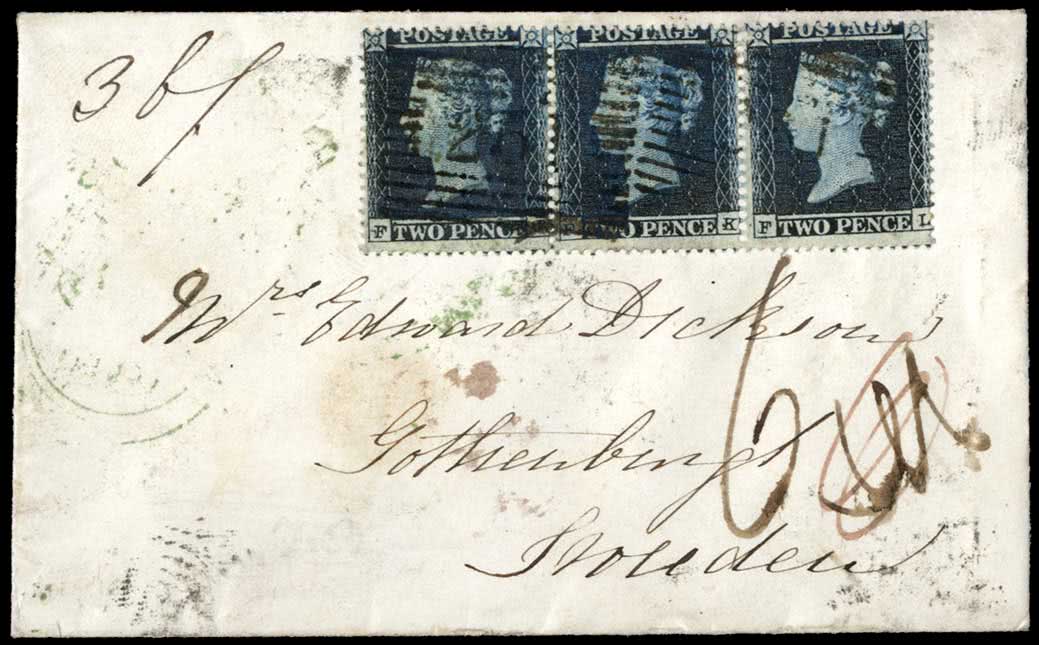 3 bf
POSTAGE POSTAGE POSTAGE
F TWO PENCE F TWO PENCE K F TWO PENCE L
Mrs Edward Dickson
Gothenburgh
Sweden
6